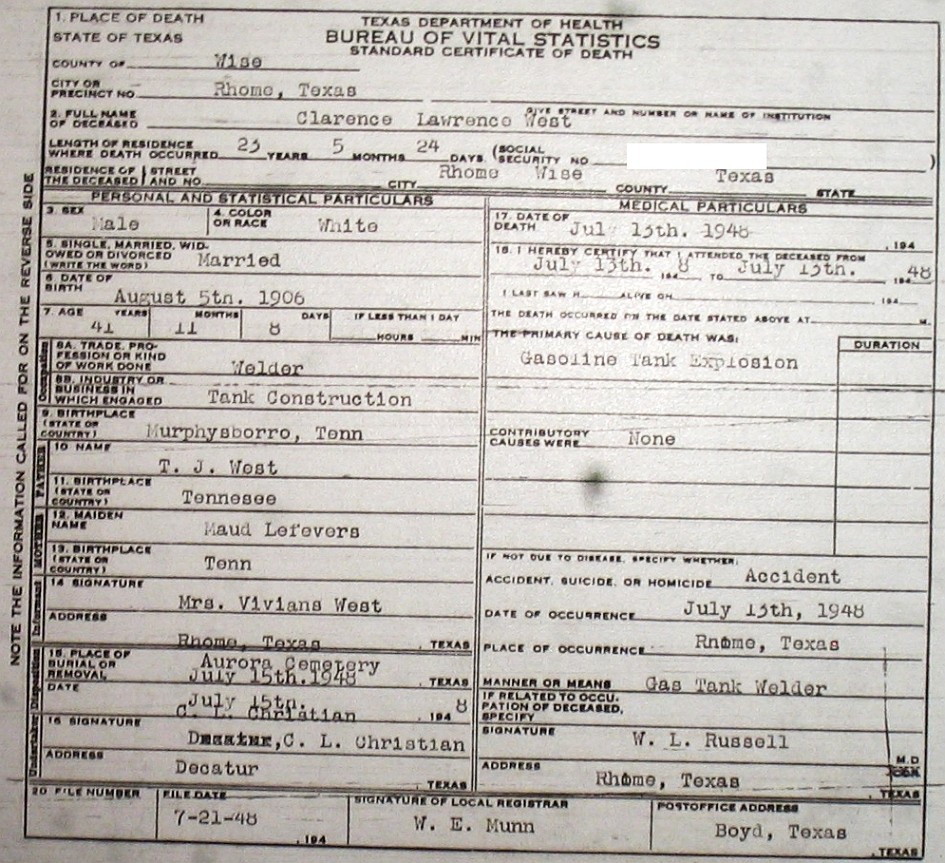 1. PLACE OF DEATH
STATE OF TEXAS
TEXAS DEPARTMENT OF HEALTH
BUREAU OF VITAL STATISTICS
STANDARD CERTIFICATE OF DEATH
COUNTY OF Wise
CITY OR PRECINCT NO. Rhome, Texas
GIVE STREET AND NUMBER OR NAME OF INSTITUTION
2. FULL NAME OF DECEASED Clarence Lawrence West
LENGTH OF RESIDENCE WHERE DEATH OCCURRED 23 YEARS 5 MONTHS 24 DAYS. (SOCIAL SECURITY NO. )
RESIDENCE OF THE DECEASED STREET AND NO. CITY Rhome Wise COUNTY Texas STATE
NOTE THE INFORMATION CALLED FOR ON THE REVERSE SIDE
PERSONAL AND STATISTICAL PARTICULARS
3. SEX Male
4. COLOR OR RACE White
5. SINGLE, MARRIED, WIDOWED OR DIVORCED (WRITE THE WORD) Married
6 DATE OF BIRTH August 5tn. 1906
7. AGE 41 YEARS 11 MONTHS 8 DAYS IF LESS THAN 1 DAY HOURS MIN
Occupation
8A. TRADE, PROFESSION OR KIND OF WORK DONE Welder
8B. INDUSTRY OR BUSINESS IN WHICH ENGAGED Tank Construction
9. BIRTHPLACE (STATE OR COUNTRY) Murphysborro, Tenn
FATHER
10 NAME T. J. West
11. BIRTHPLACE (STATE OR COUNTRY) Tennesee
MOTHER
12. MAIDEN NAME Maud Lefevers
13. BIRTHPLACE (STATE OR COUNTRY) Tenn
Informant
14 SIGNATURE Mrs. Vivians West
ADDRESS Rhome, Texas , TEXAS
Disposition
15. PLACE OF BURIAL OR REMOVAL Aurora Cemetery
July 15th.1948 , TEXAS
DATE July 15tn. , 194 8
C. L. Christian
Undertaker
16 SIGNATURE Decatur, C. L. Christian
ADDRESS Decatur , TEXAS
MEDICAL PARTICULARS
17. DATE OF DEATH July 13th. 1948 , 194
18. I HEREBY CERTIFY THAT I ATTENDED THE DECEASED FROM
July 13th. 8 194 TO July 13th. 194 48
I LAST SAW H ALIVE ON 194
THE DEATH OCCURRED ON THE DATE STATED ABOVE AT M.
THE PRIMARY CAUSE OF DEATH WAS: DURATION
Gasoline Tank Explosion
CONTRIBUTORY CAUSES WERE None
IF NOT DUE TO DISEASE, SPECIFY WHETHER:
ACCIDENT, SUICIDE, OR HOMICIDE Accident
DATE OF OCCURRENCE July 13th, 1948
PLACE OF OCCURRENCE Rnome, Texas
MANNER OR MEANS Gas Tank Welder
IF RELATED TO OCCUPATION OF DECEASED, SPECIFY
SIGNATURE W. L. Russell M.D
ADDRESS Rhome, Texas , TEXAS
20 FILE NUMBER
FILE DATE 7-21-48 , 194
SIGNATURE OF LOCAL REGISTRAR W. E. Munn
POSTOFFICE ADDRESS Boyd, Texas , TEXAS